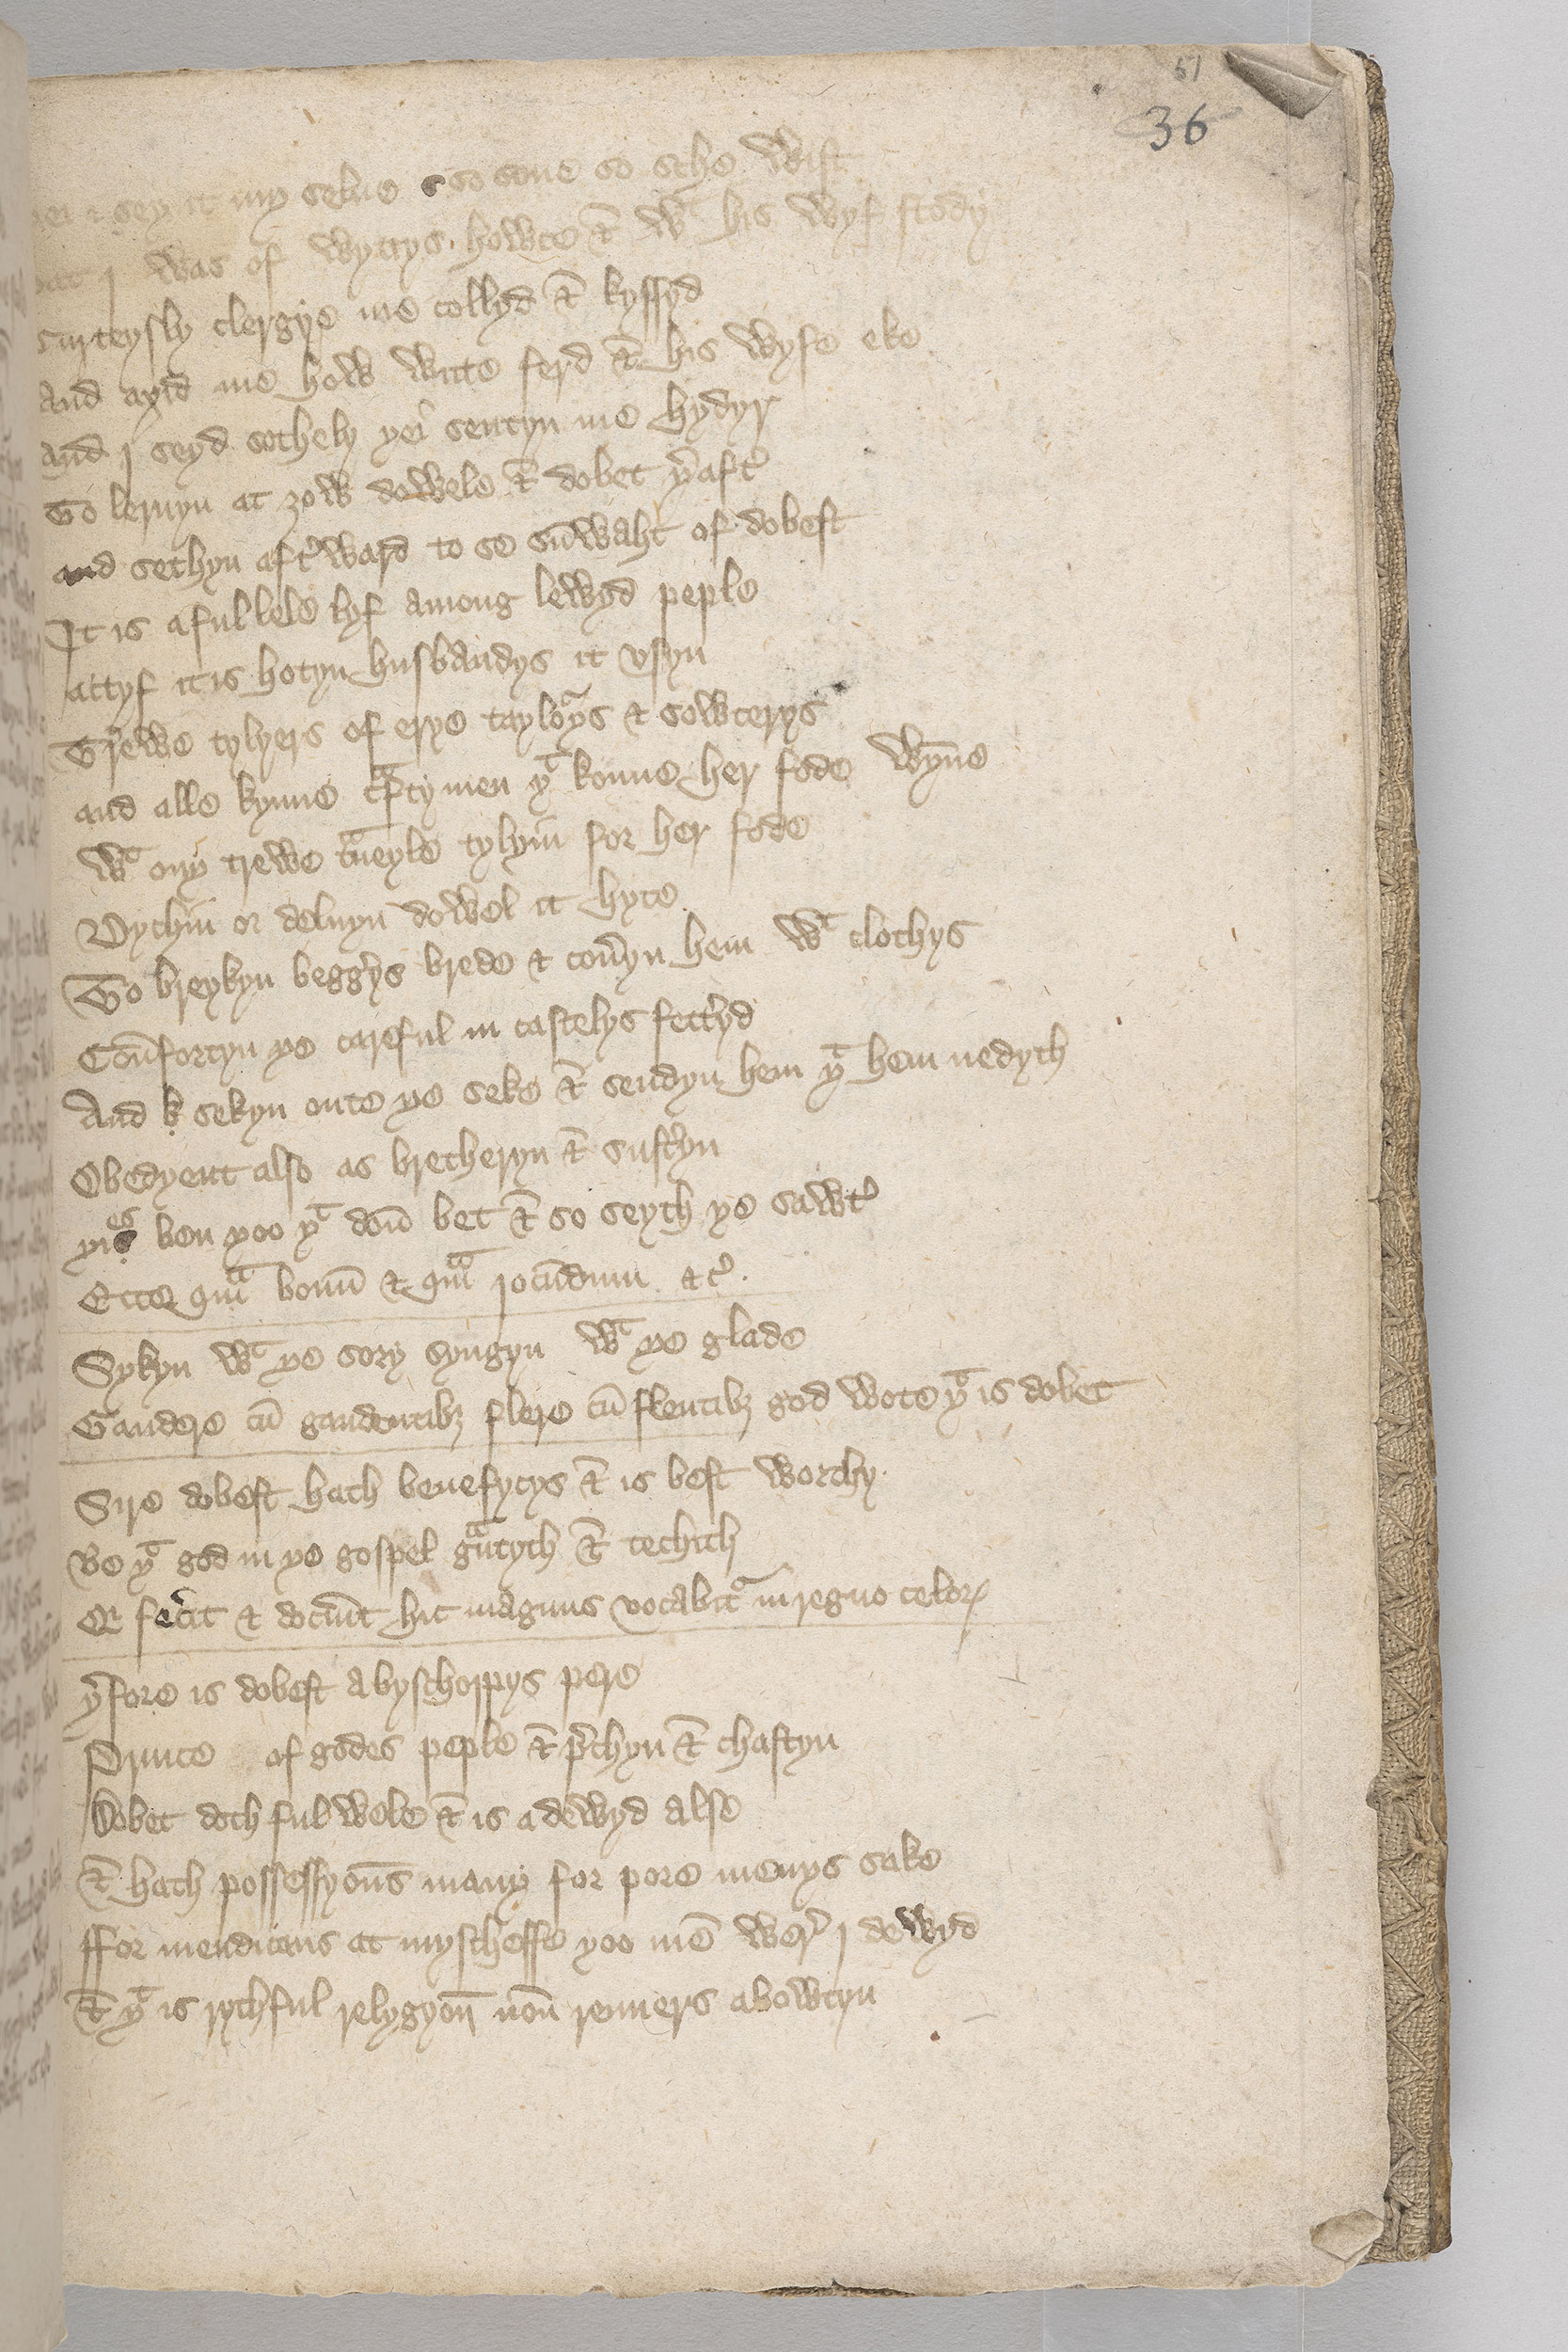 51
36
sey it my selue so sone so sche wist
I was of wyttys howce & wt his wyf stody
Curteysly clergye me collyd & kyssyd
And axid me how witte ferd & his wyfe eke
And I seyd sothely yei sentyn me hydyr
To lernyn at ȝow dowele & dobet yaft̉
and sethyn aft̉ward to se su̅waht of dobest
It is a ful lele lyf among lewyd peple
attyf it is hotyn husbandys it vsyn
Trewe tylyers of erye taylorys & sowterys
and alle kynne cͬfty men yt konne her fode wȳne
wt ony trewe tͣueyle tylyn̅ for her fode
Dychin̅ or deluyn dowel it hyte
To breykyn begg̉ys brede & coủyn hem wt clothys
Cou̅fortyn ye careful in castelys fett̉yd
And sekyn onto ye seke & sendyn hem yt hem nedyth
Obedyent also as bretheryn & sust̉yn
yies ben yoo yt don̅ bet & so seyth ye sawt̉
Ecce qͣm bonu̅ & qͣm iocu̅dum & c̉.
Sykyn wt ye sory syngyn wt ye glade
Gaudere cu̅ gaudentibȝ flere cu̅ flentibȝ god wote yt is dobet
Sire dobest hath benefycys & is best worthy.
Be yt god in ye gospel gͣu̅tyth & techith
Qr fecit & docuit̅ hic magnus vocabit̉ in regno celorꝝ
ỷfore is dobest a byschoppys pere
Prince of godes peple & p̉chyn & chastyn
Dobet doth ful wele & is a dewyd also
& hath possessyon̅s many for pore menys sake
ffor mendicans at myscheffe yoo me̅ wer̉ I dewyd
& yt is rythful relygyon̅ non̅ renners abowtyn